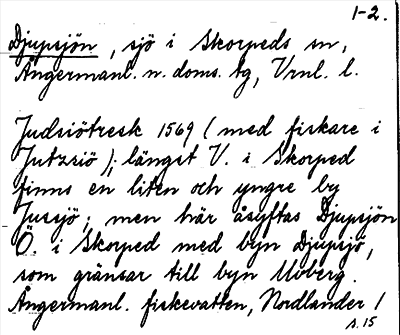 1-2.
Djupsjön, sjö i Skorpeds sn,
Ångermanl. n. doms. tg, Vrnl. l.
Judsiötresk 1569 (med fiskare i
Jutzsiö); längst V. i Skorped
finns en liten och yngre by
Jussjö; men här åsyftas Djupsjön
Ö. i Skorped med byn Djupsjö,
som gränsar till byn Uvberg.
Ångermanl. fiskevatten, Nordlander 1
s. 15